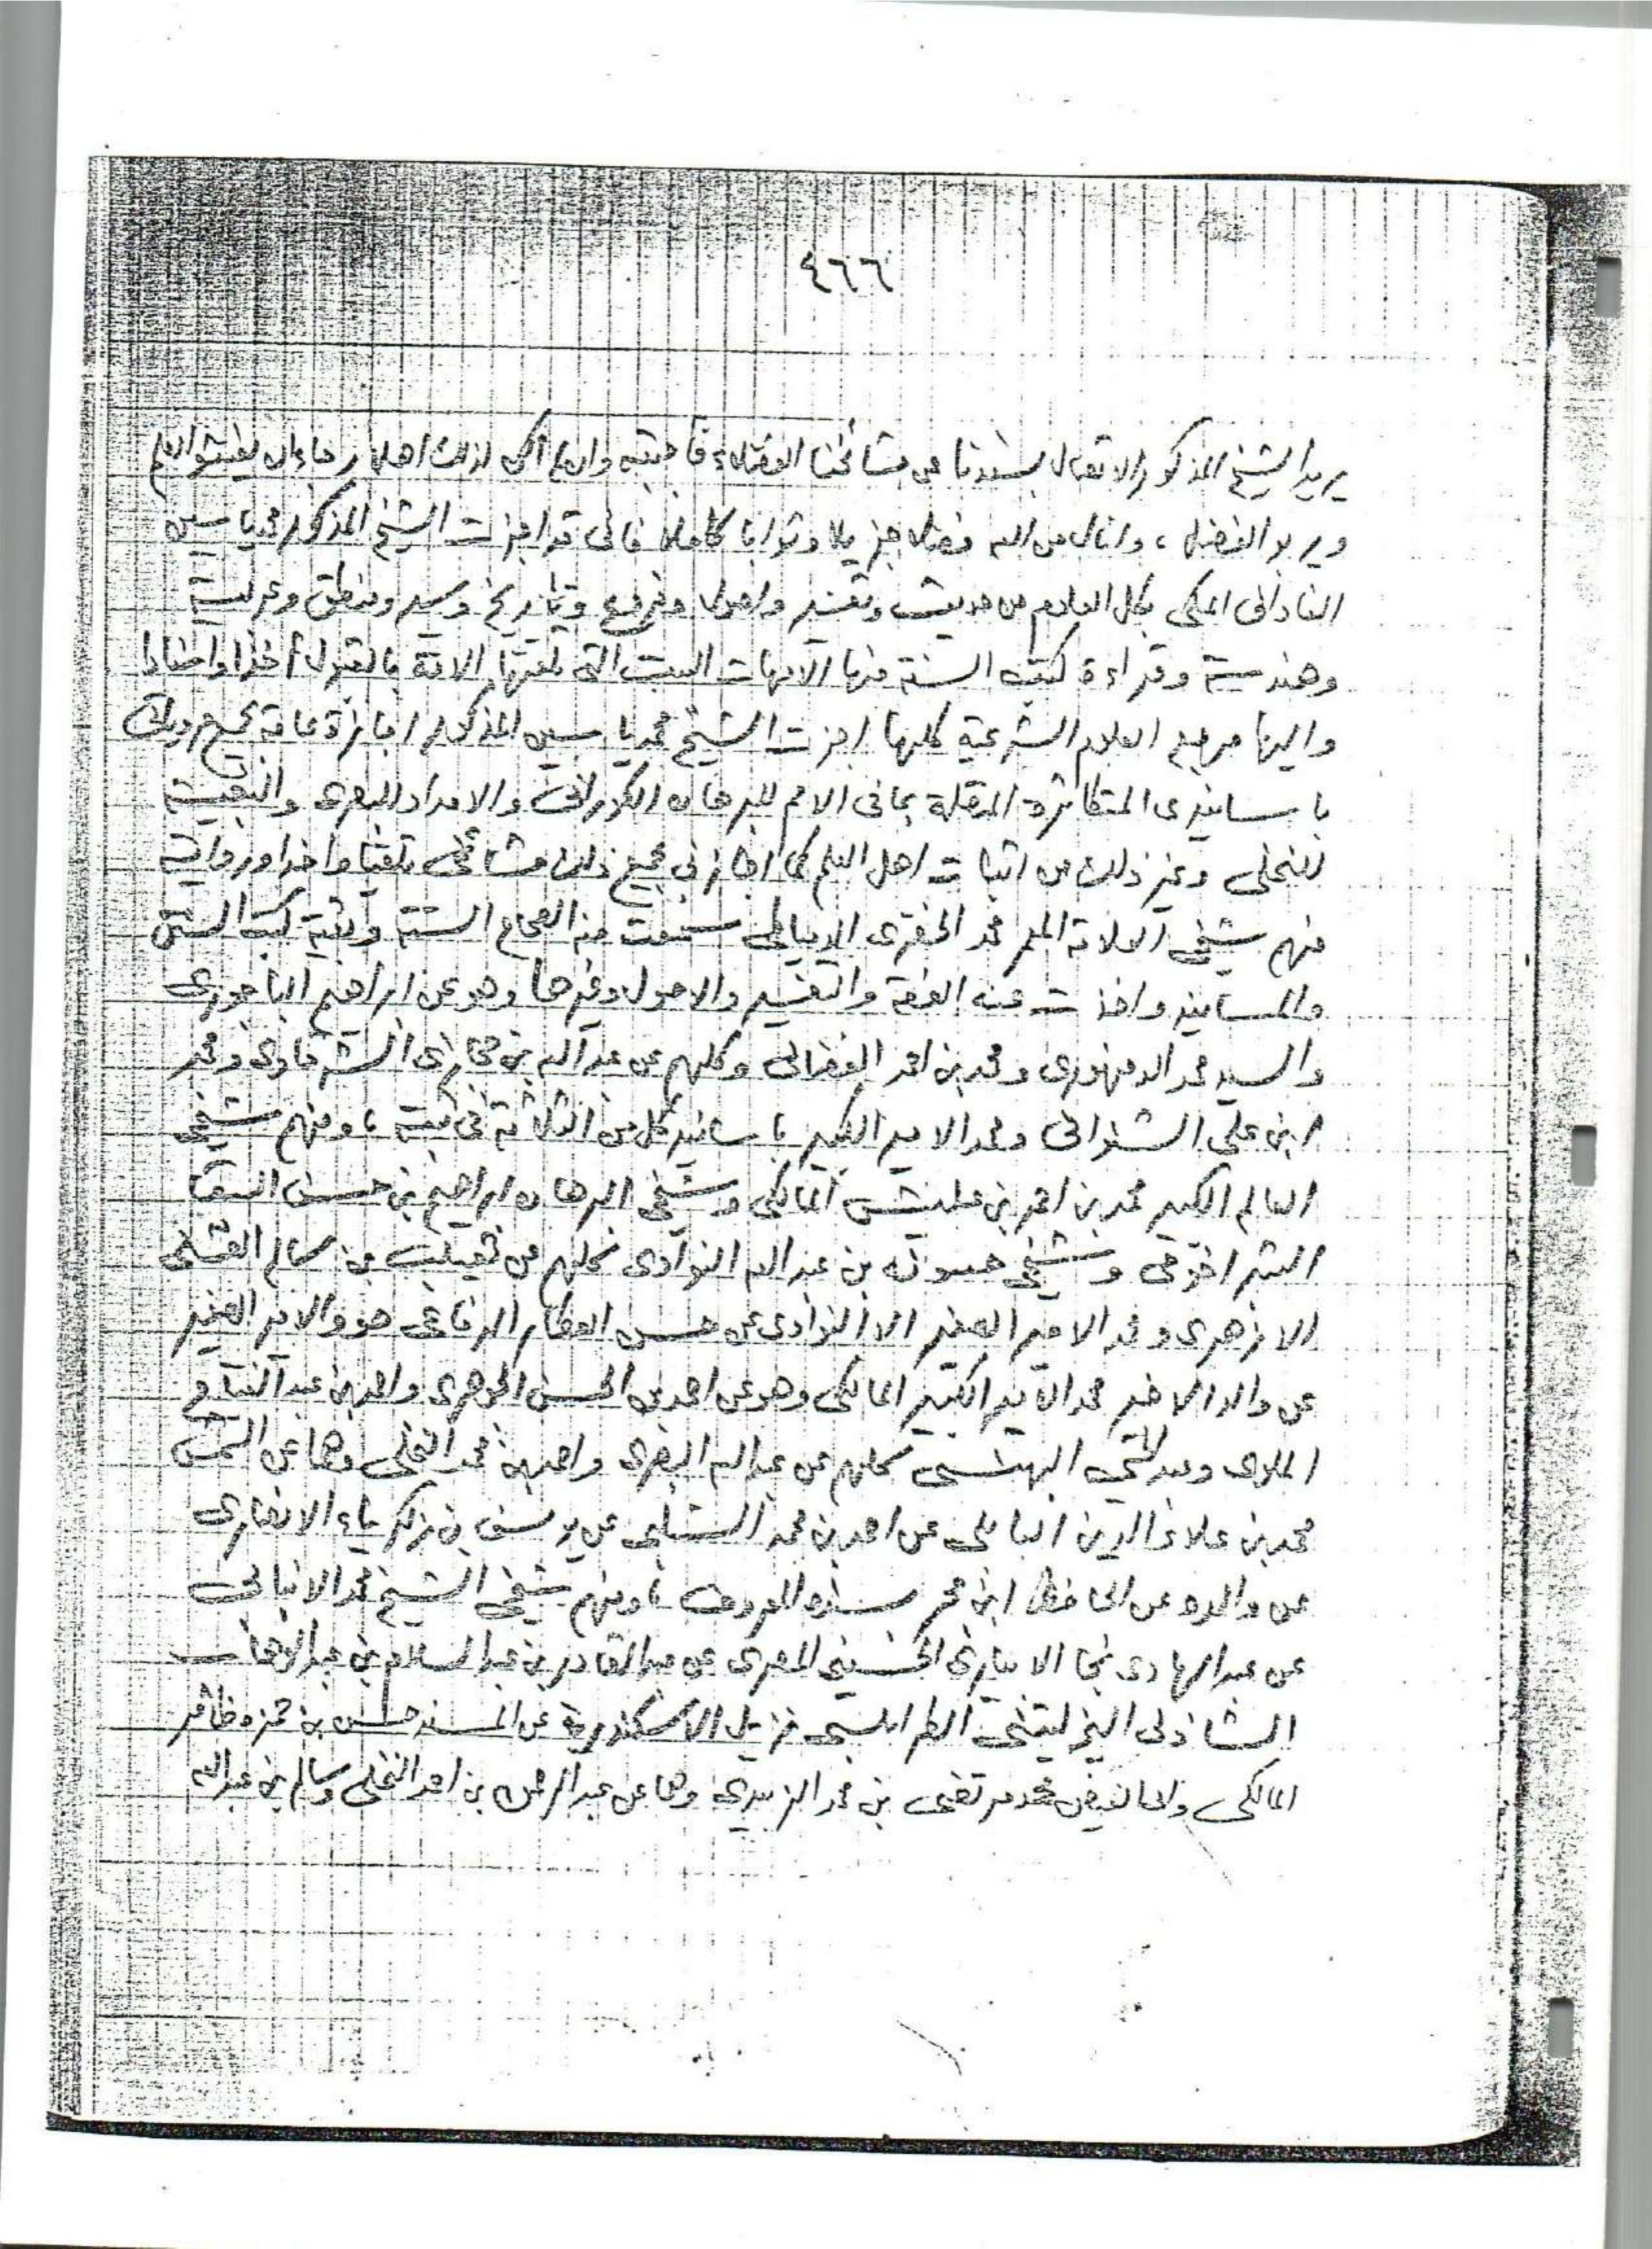 ٤٦٦
يريد الشيخ المذكور الاتصال بسندنا عن مشائخنا الفضلاء فأجبته وان لم اكن لذلك اهلا رجاء ان يفشو العلم
ويربو الفضل ، وانال من الله فضلا جزيلا وثوابا كاملا فاني قد اجزت الشيخ المذكور محمد ياسين
الفاداني المكي بكل العلوم من حديث وتفسير واصول وفروع وتاريخ وسير ومنطق وعربية
وهندسة وقراءة كتب السنة منها الامهات الست التي تلقتها الامة بالقبول أخذا
واليها مرجع العلوم الشرعية كلها اجزت الشيخ محمد ياسين المذكور اجازة عامة بجميع
باسانيدى المتكاثرة المتصلة بما في الامم للبرهان الكوراني والامداد للبصرى والبغية
للنخلى وغير ذلك من اثبات اهل العلم كما اجازني بجميع ذلك مشائخي تلقيا واخذا ورواية
منهم شيخي العلامة المعمر محمد الخضرى الدمياطي سمعت منه الصحاح الستة وبقية كتب السنن
والمسانيد واخذت عنه الفقه والتفسير والاصول وغيرها وهو عن ابراهيم الباجورى
والسيد محمد الدمنهورى ومحمد بن احمد الفضالي وكلهم عن عبد الله بن حجازى الشرقاوى ومحمد
ابن على الشنواني ومحمد الامير الكبير باسانيد كل من الثلاثة في ثبته ، ومنهم شيخي
العالم الكبير محمد بن احمد بن عليش المالكي وشيخي البرهان ابراهيم بن حسن السقا
وشيخي حسونه بن عبد الله النواوى كلهم عن ثعيلب بن سالم الفشنى
الازهرى ومحمد الامير الصغير الا النواوى عن حسن العطار الرفاعي هو والامير الصغير
عن والد الاخير محمد الامير الكبير المالكي وهو عن احمد بن الحسن الجوهرى واحمد بن عبد الفتاح
الملوى وعبد الحي البهنسى كلهم عن عبد الله البصرى واحمد بن محمد النخلي وهما عن الشمس
محمد بن علاء الدين البابلي عن احمد بن محمد الشلبى عن يوسف بن زكرياء الانصارى
عن والده عن الحافظ ابن حجر بسنده المعروف ، ومنهم شيخي الشيخ محمد الانبابي
عن عبد الهادى نجا الابيارى المصرى عن عبد القادر بن عبد السلام بن عبد الوهاب
الشاذلى اليزليتني الطرابلسي نزيل الاسكندرية عن المسند حسن بن حمزه
المالكي محمد مرتضى بن محمد الزبيدى وهما عن عبد الرحمن بن احمد النخلي وسالم بن عبد الله